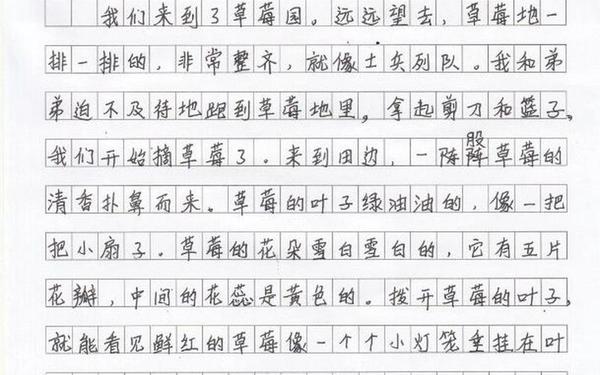 我们来到了草莓园。远远望去，草莓地一
排一排的，非常整齐，就像士兵列队。我和弟
弟迫不及待地跑到草莓地里，拿起剪刀和篮子，
我们开始摘草莓了。来到田边，一阵股阵草莓的
清香扑鼻而来。草莓的叶子绿油油的，像一把
把小扇子。草莓的花朵雪白雪白的，它有五片
花瓣，中间的花蕊是黄色的。拨开草莓的叶子，
就能看见鲜红的草莓像一个个小灯笼垂挂在叶